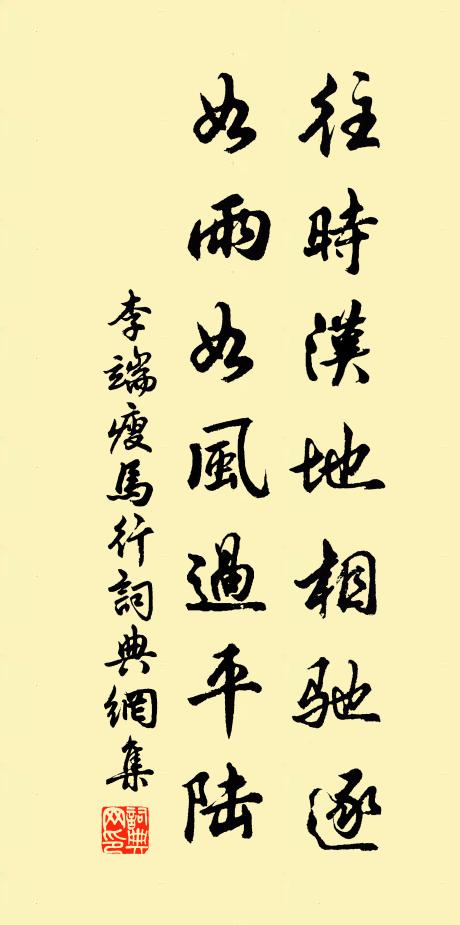 往時漢地相馳逐
如雨如風過平陆
李端瘦馬行詞典網集
詞典网印